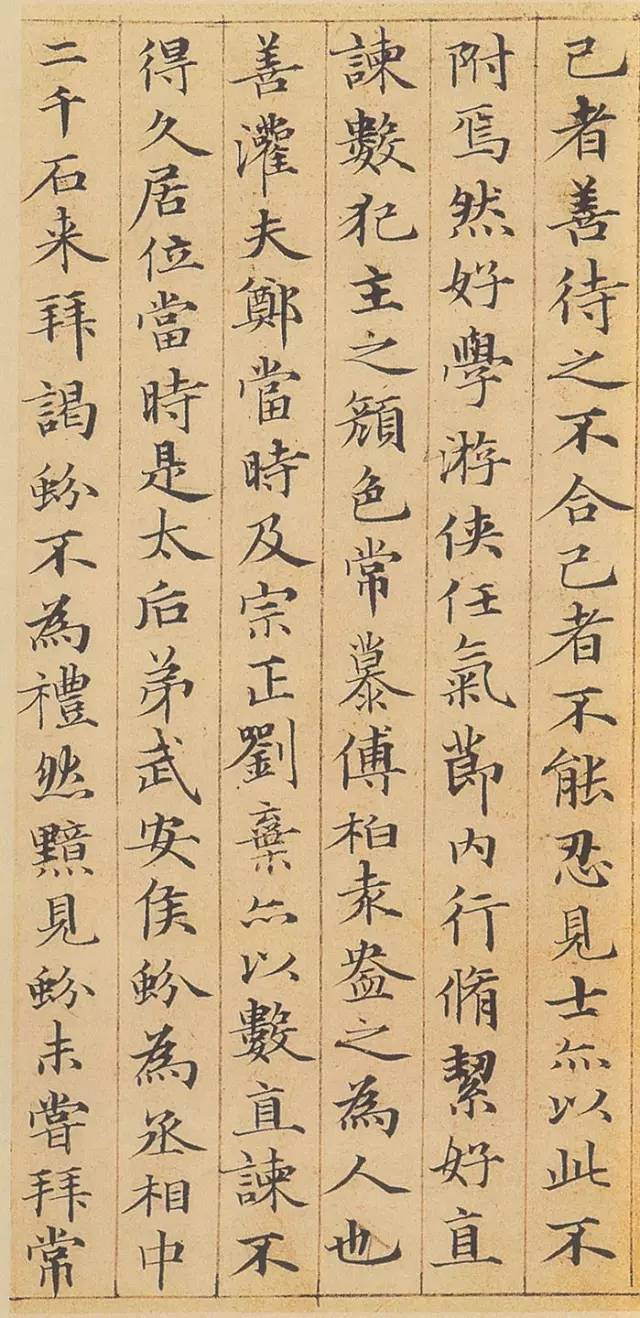 己者善待之不合己者不能忍見士亦以此不
附焉然好學游俠任氣節內行脩絜好直
諫數犯主之顏色常慕傅柏袁盎之為人也
善灌夫鄭當時及宗正劉棄亦以數直諫不
得久居位當時是太后弟武安侯蚡為丞相中
二千石来拜謁蚡不為禮然黯見蚡未嘗拜常